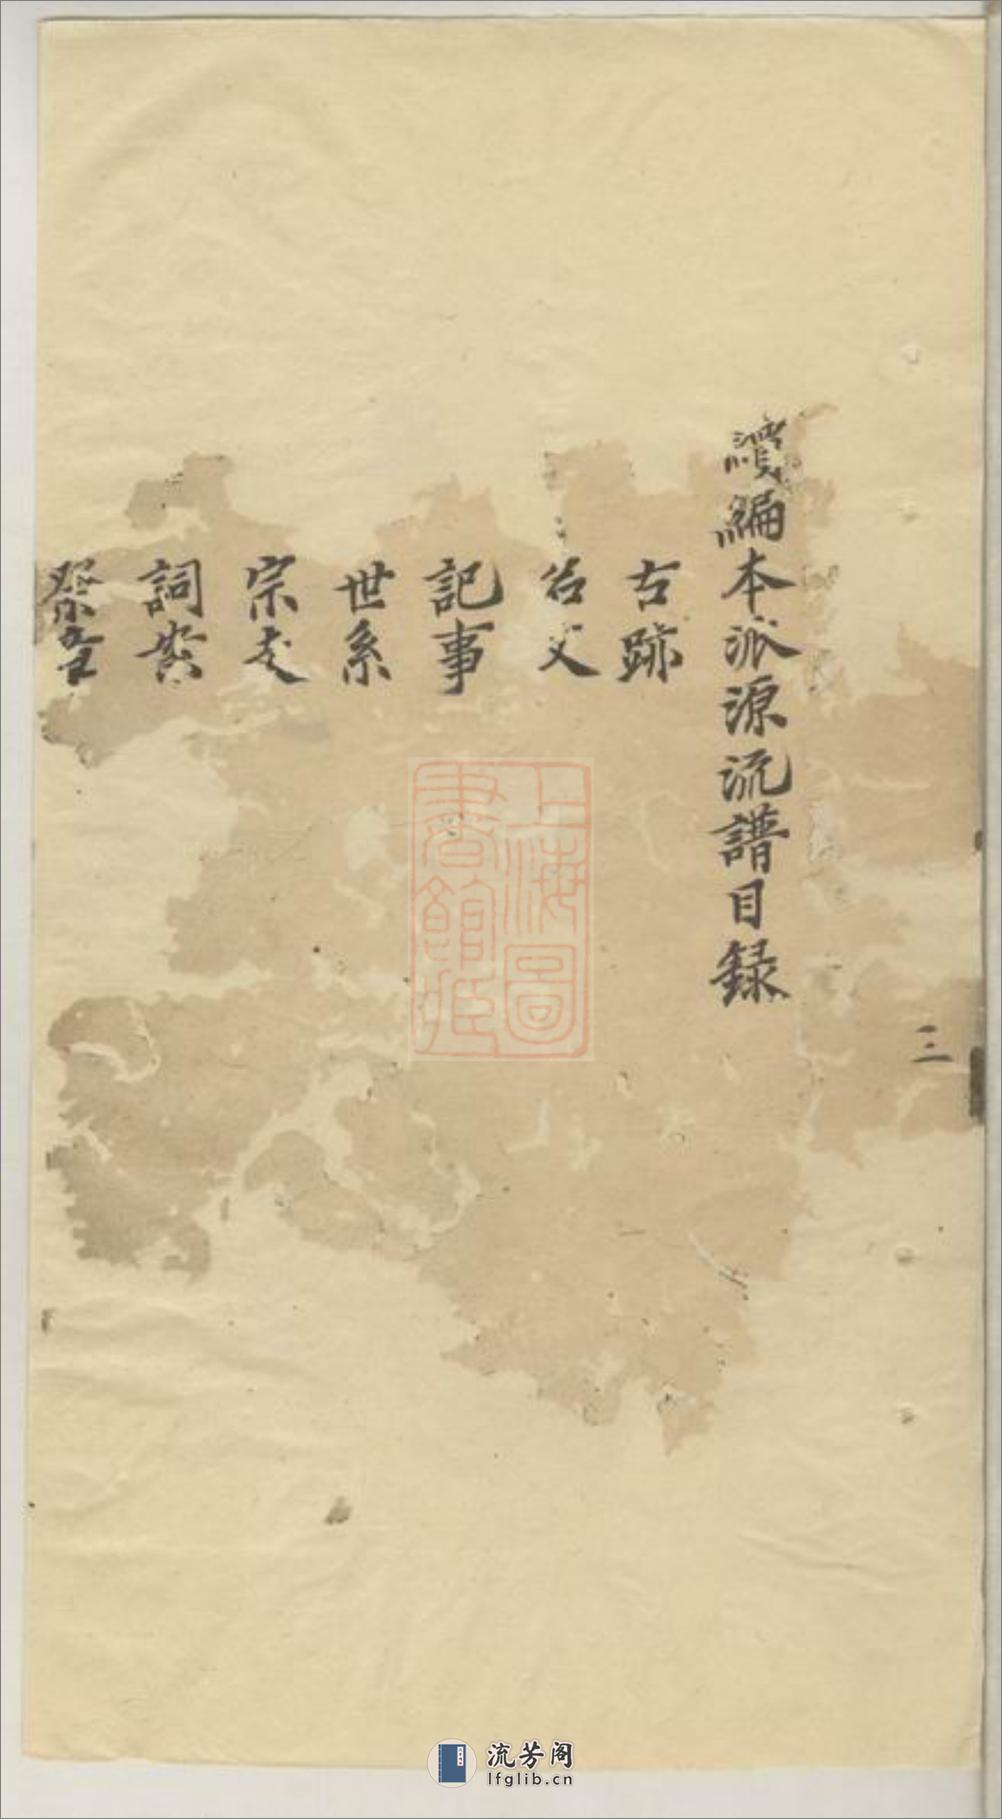 三
續編本派源流譜目録
古跡
名文
記事
世系
宗支
詞
祭
上海圖
書館藏
流芳阁
lfglib.cn